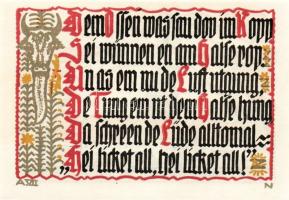 Dem Ossen was san dop im Kopp
Sei wunnen en am Halse rop
Un as em nu de Luft utgung
De Tung em ut dem Halse hung
Da schreen de Lüde alltomal
„Hei licket all, hei licket all!"